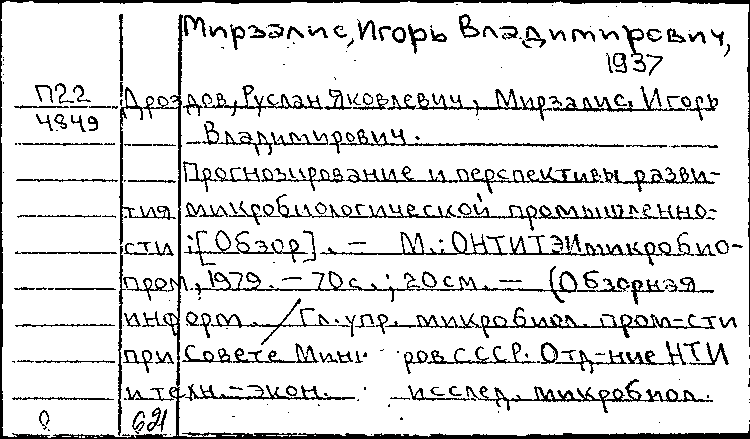 Мирзалис, Игорь Владимирович,
1937
П22
4849
Дроздов, Руслан Яковлевич, Мирзалис, Игорь
Владимирович.
Прогнозирование и перспективы разви-
тия микробиологической промышленно-
сти : [Обзор]. — М. : ОНТИТЭИмикробио-
пром, 1979. — 70 с. ; 20 см. — (Обзорная
информ. / Гл. упр. микробиол. пром-сти
при Совете Мин ров СССР. Отд-ние НТИ
и техн.-экон. исслед. микробиол.
0 621